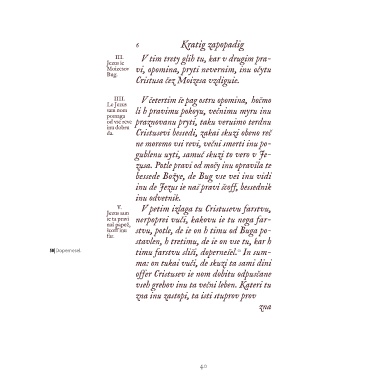 6
Kratig zapopadig
III.
Jezus ie
Moizesov
Bug.
V tim trety glih tu, kar v drugim pra-
vi, opomina, pryti nevernim, inu očytu
Cristusa čez Moizesa vzdiguie.
IIII.
Le Jezus
sam nom
pomaga
od vse reve
inu dobru
da.
V četertim ie pag ostru opomina, hočmo
li h pravimu pokoyu, večnimu myru inu
praznovanu pryti, taku veruimo terdnu
Cristusevi bessedi, zakai skuzi obeno reč
ne moremo vsi revi, večni smerti inu po-
gublenu uyti, samuč skuzi to vero v Je-
zusa. Potle pravi od močy inu opravila te
bessede Božye, de Bug vse vei inu vidi
inu de Jezus ie naš pravi šcoff, bessednik
inu odvetnik.
V.
Jezus sam
ie ta pravi
naš papež,
šcoff inu
far.
V petim izlaga tu Cristusevu farstvu,
nerpoprei vuči, kakovu ie tu nega far-
stvu, potle, de ie on h timu od Buga po-
stavlen, h tretimu, de ie on vse tu, kar h
timu farstvu sliši, dopernešel. In sum-
ma: on tukai vuči, de skuzi ta sami dini
offer Cristusev ie nom dobitu odpusčane
vseh grehov inu ta večni leben. Kateri tu
zna inu zastopi, ta isti stuprov prov
zna
Dopernesel.
40